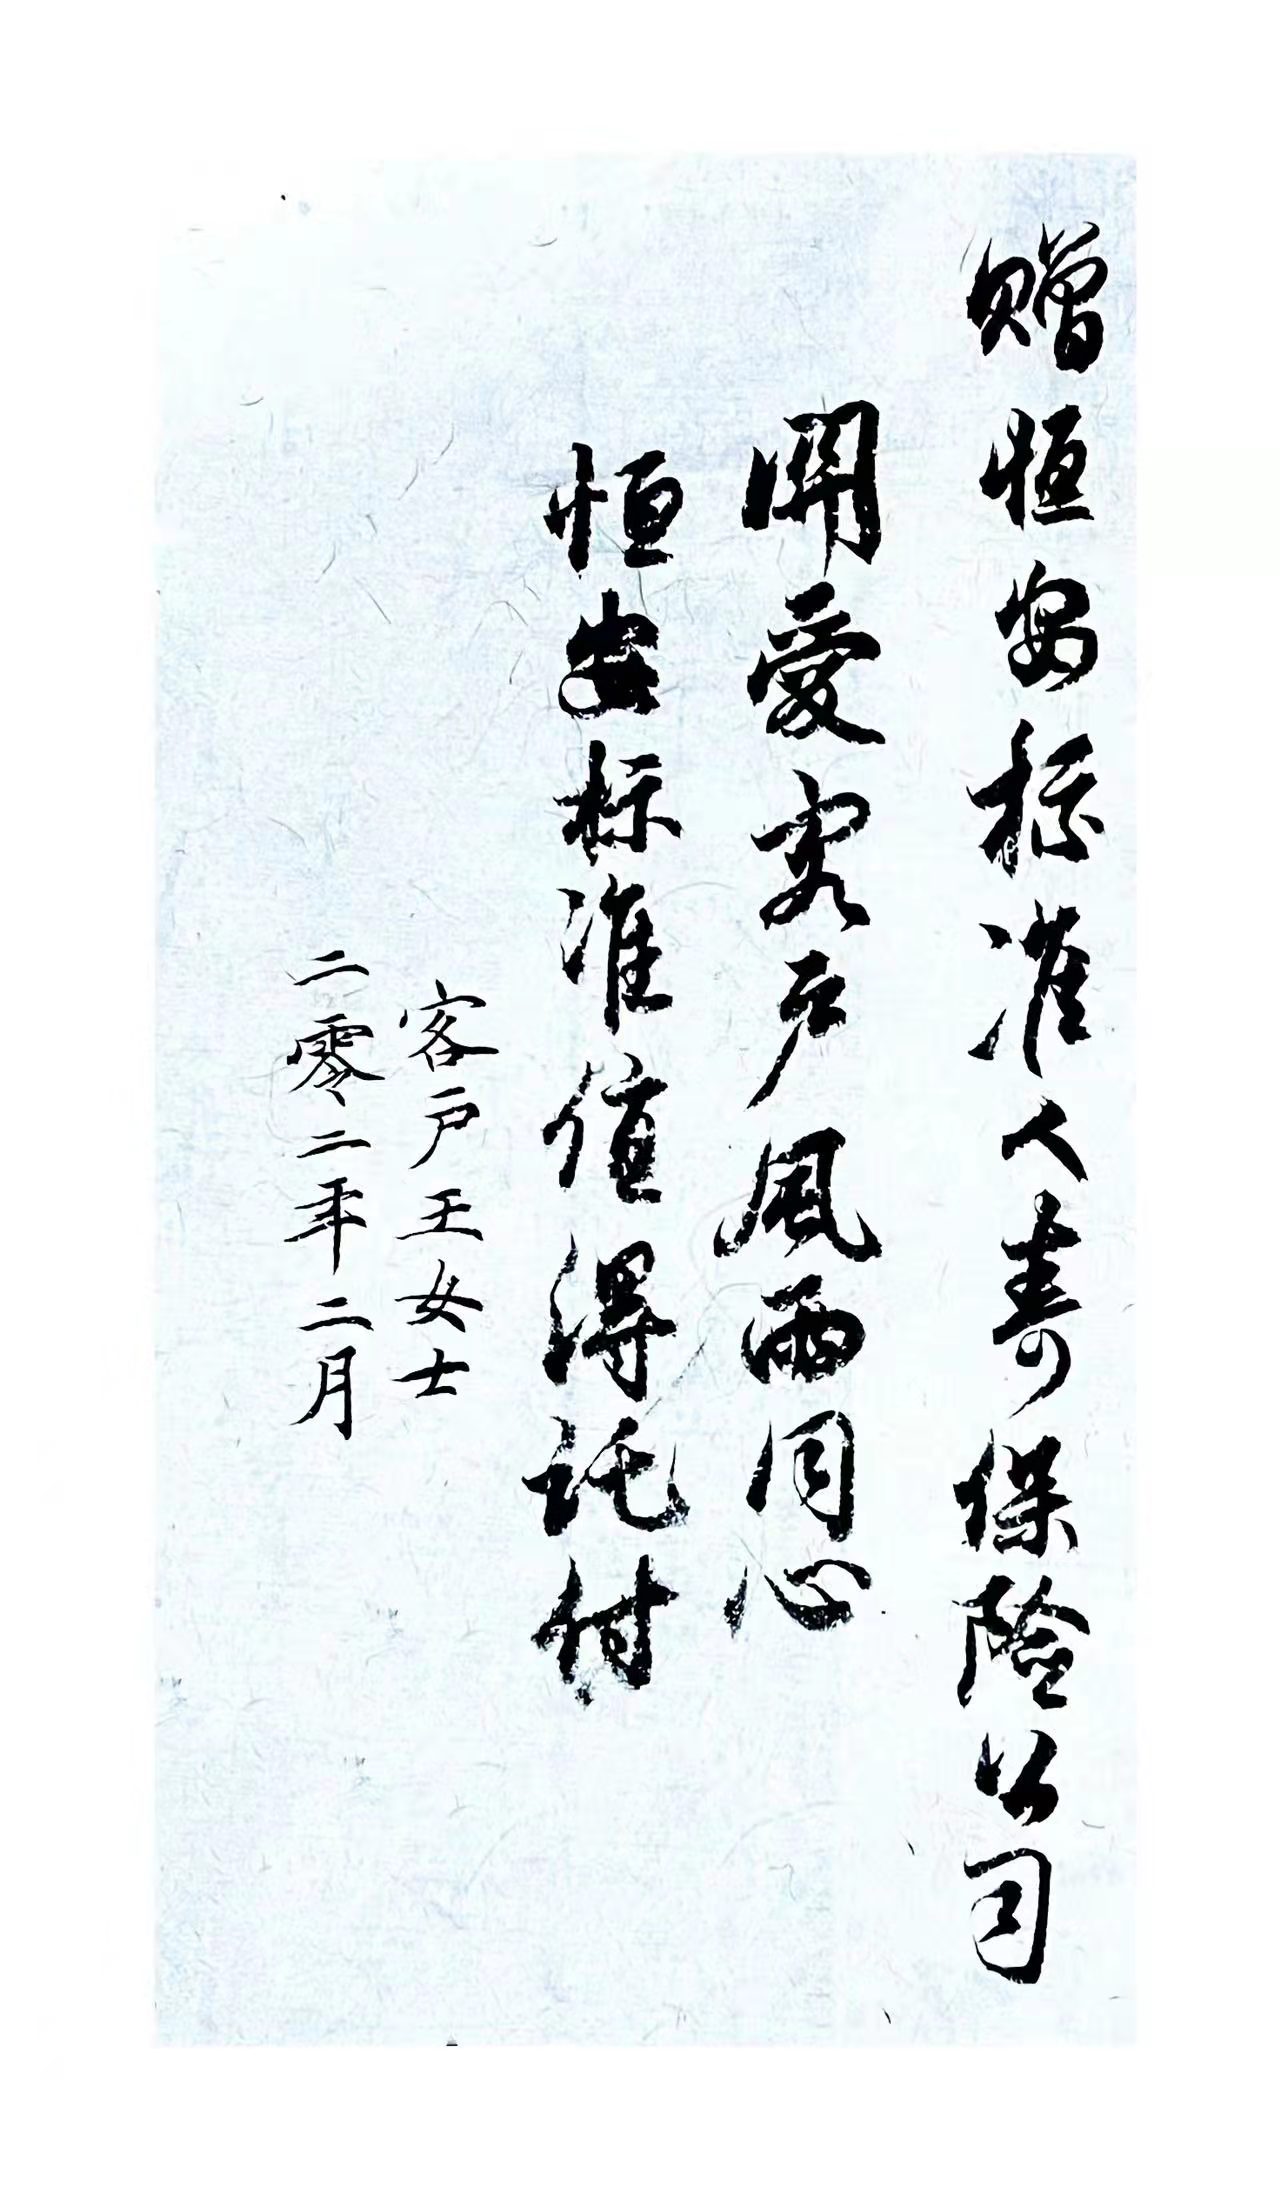 赠恒安标准人寿保险公司
関爱客户风雨同心
恒安标准值得托付
客户王女士
二零二年二月